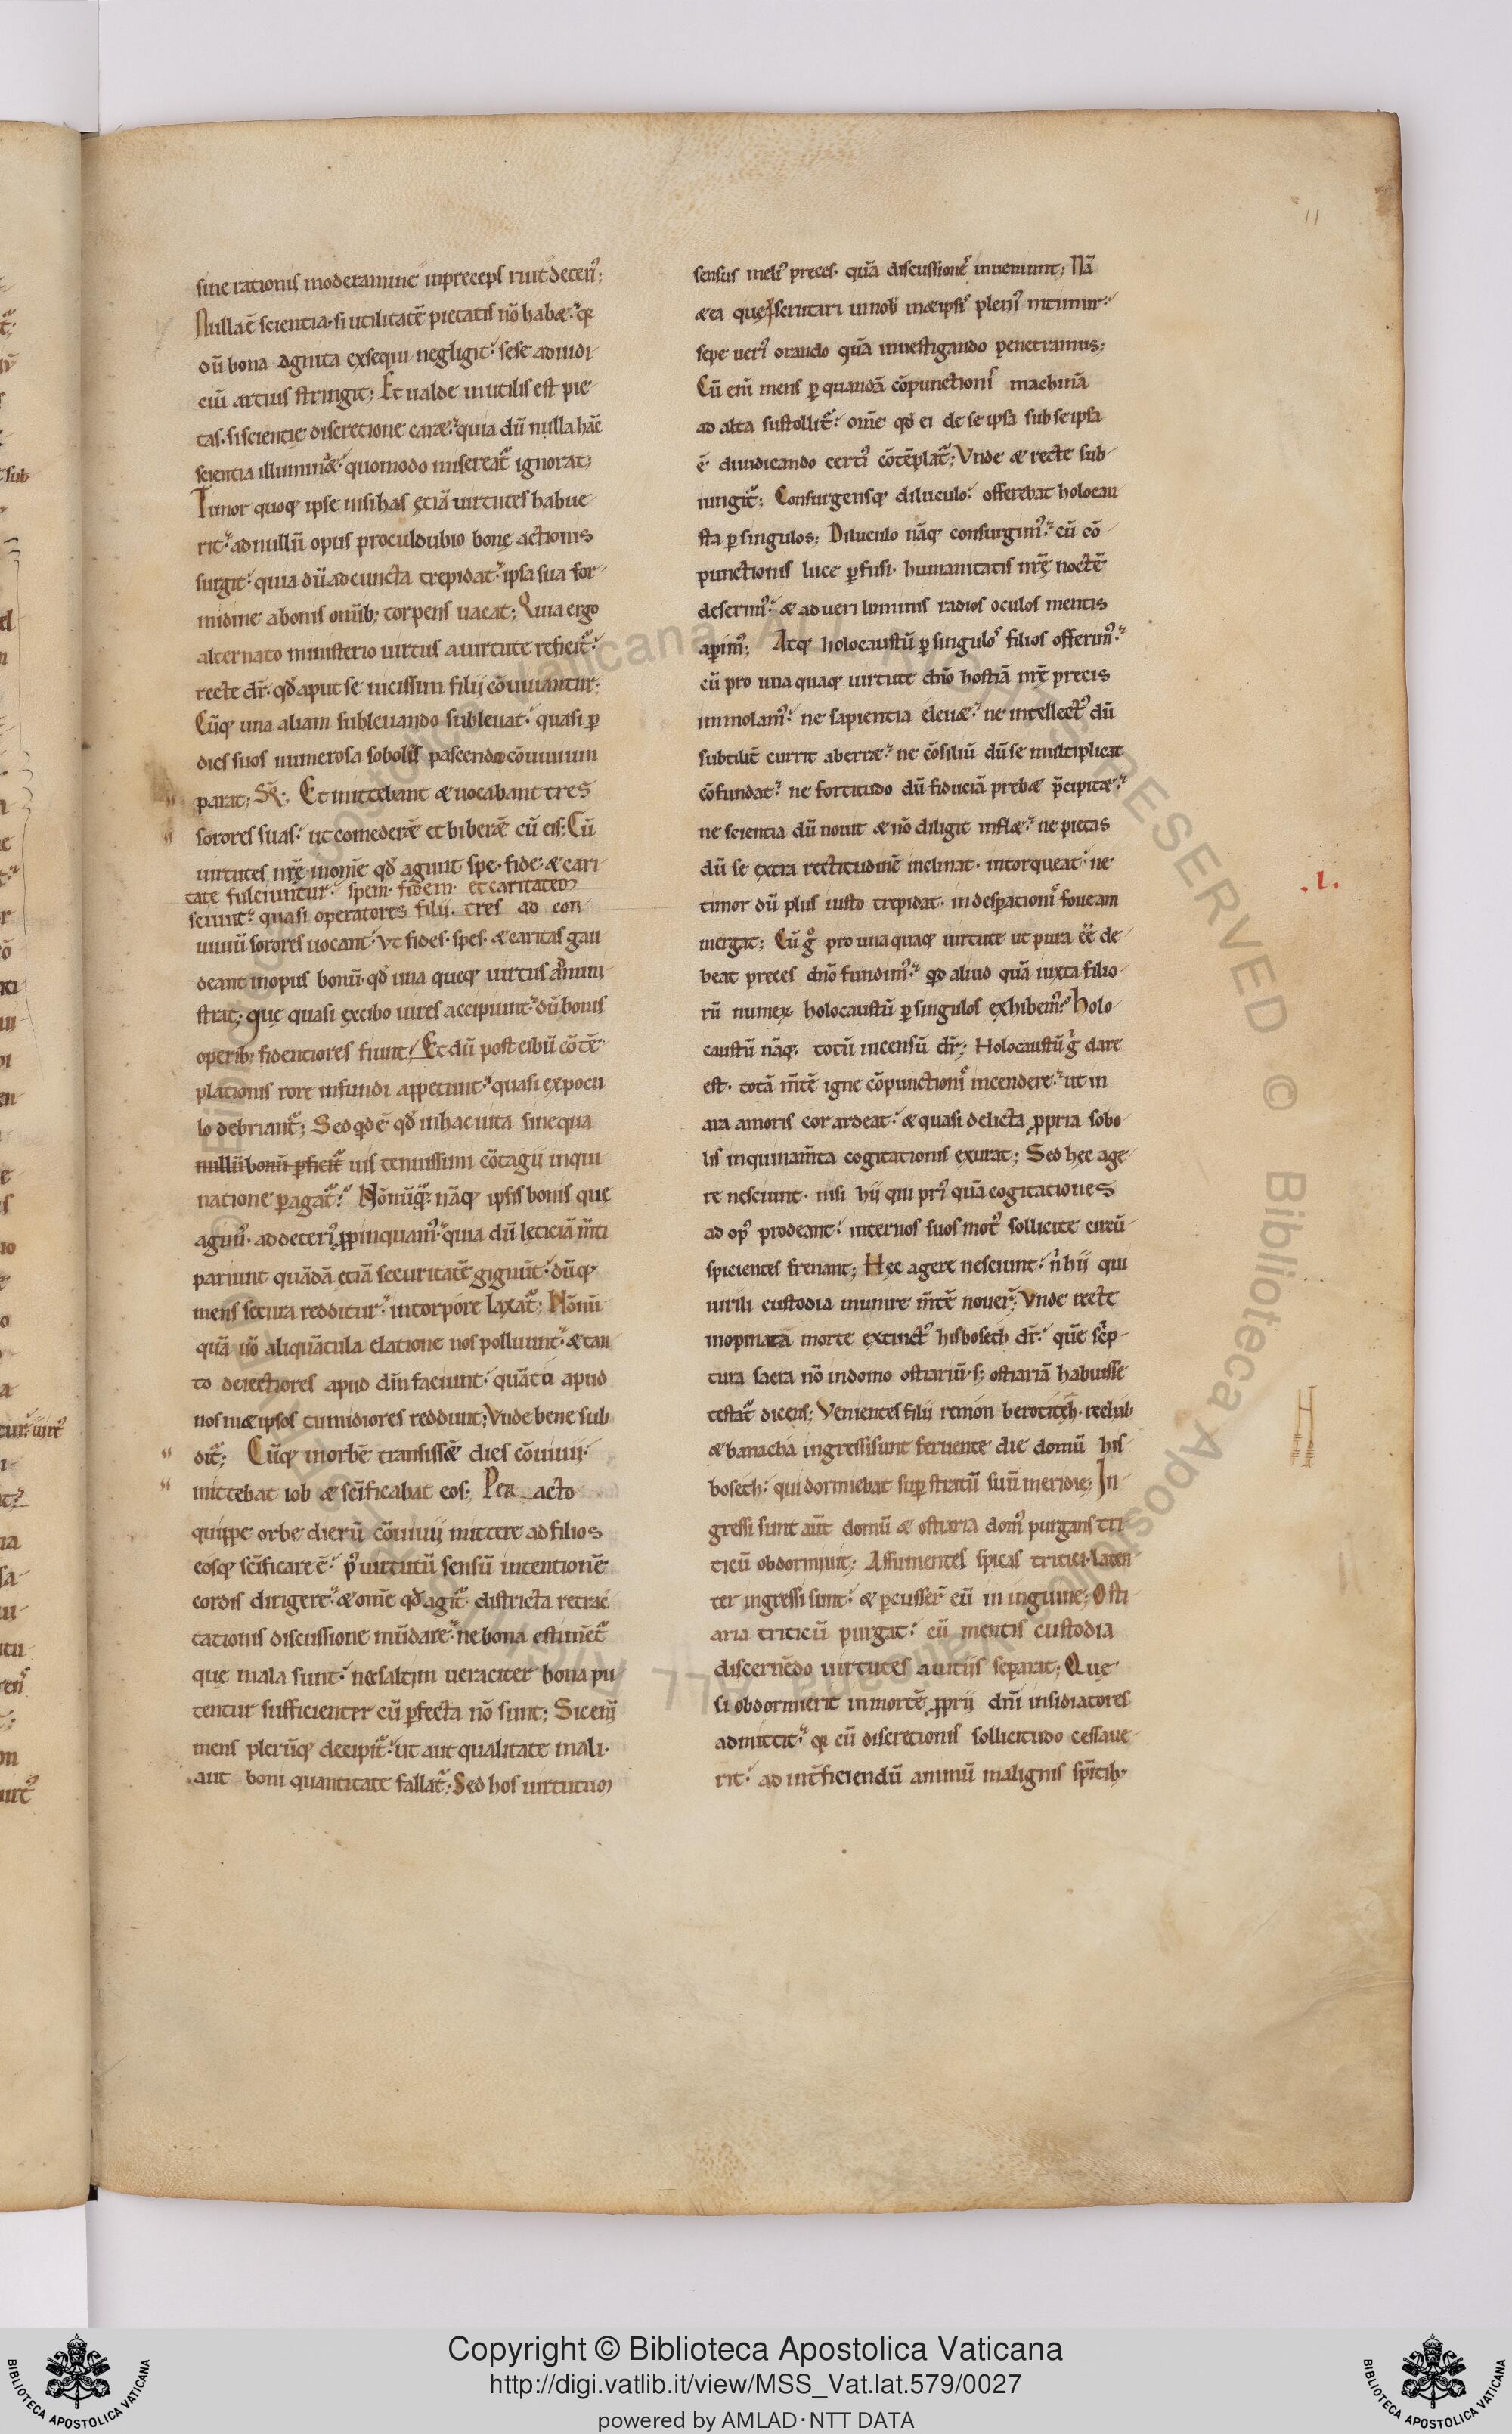 11
sine rationis moderamine inpreceps ruit deterı᷒;
Nulla ē scientia· si utilitatē pietatis nō habæ· qꝛ
dū bona agnita exsequi negligit· sese ad iudi
ciū artius stringit; Et ualde inutilis est pie
tas· si scientię discretione caræ· quia dū nulla hāc
scientia illuminæ· quomodo misereat᷑ ignorat;
Timor quoqꝫ ipse nisi has ętiā uirtutes habue
rit· ad nullū opus proculdubio bonę actionis
surgit· quia dū ad cuncta trepidat· ipsa sua for
midine a bonis om̄ibꝫ torpens uacat; Quia ergo
alternato ministerio uirtus a uirtute reficit᷑·
recte dr̄· qđ aput se uicissim filii cōuiuantur;
Cūqꝫ una aliam subleuando subleuat· quasi ꝑ
dies suos numerosa sobolis pascenda cōuiuium
parat; Et mittebant & uocabant tres
sorores suas· ut comederē et biberē cū eis; Cū
uirtutes nr̄ę in om̄e qđ agunt spe· fide· & cari
tate fulciuntur· spem· fidem· et caritatem
sciunt· quasi operatores filii· tres ad con
uiuiū sorores uocant· Vt fides· spes· & caritas gau
deant in opus bonū· qđ una queqꝫ uirtus admini
strat; quę quasi ex cibo uires accipiunt· dū bonis
operibꝫ fidentiores fiunt· Et dū post cibū cōtē
plationis rore infundi appetunt· quasi ex pocu
lo debriant᷑; Sed qđ ē qđ in hac uita sine qua
nullū bonū ꝑficit᷑ uis tenuissimi cōtagii inqui
natione ꝑagat᷑· Nōnūqꝫ nāqꝫ ipsis bonis que
agim᷒· ad deteri᷒ ꝓpinquam᷒· quia dū lęticiā m̄ti
pariunt quādā etiā securitatē gignūt· dūqꝫ
mens secura redditur· in torpore laxat᷑; Nōnū
quā uō aliquātula elatione nos polluunt· & tan
to deiectiores apud dm̄ faciunt· quāto apud
nosmæipsos tumidiores reddunt; Vnde bene sub
dit᷑; Cūqꝫ in orbē transissē dies cōuiuii·
mittebat iob & sc̄ificabat eos; Per acto
quippe orbe dierū cōuiuii mittere ad filios
eosqꝫ sc̄ificare ē· p᷒ uirtutū sensū intentionē
cordis dirigere· & om̄e qđ agit᷑· districta retrac
tationis discussione mūdare· ne bona estimēt᷑
quę mala sunt· ne saltim ueraciter bona pu
tentur sufficienter cū ꝑfecta nō sunt; Sic eni
mens plerūqꝫ decipit᷑· ut aut qualitate mali·
aut boni quantitate fallat᷑; Sed hos uirtutum
sensus meli᷒ preces· quā discussiones inueniunt; Nā
& ea quę ꝑscrutari in nob mæipsis pleni᷒ nitimur·
sepe ueri᷒ orando quā inuestigando penetramus;
Cū eni mens ꝑ quandā cōpunctionis machinā
ad alta sustollit᷑· om̄e qđ ei de se ipsa sub se ipsa
ē diiudicando certi᷒ cōtēplat᷑; Vnde & recte sub
iungit᷑; Consurgensqꝫ diluculo· offerebat holocau
sta ꝑ singulos; Diluculo nāqꝫ consurgim᷒· cū cō
punctionis luce ꝑfusi· humanitatis nr̄ę noctē
deserim᷒· & ad ueri luminis radios oculos mentis
aꝑim᷒; Atqꝫ holocaustū ꝑ singulos filios offerim᷒·
cū pro una quaqꝫ uirtute dn̄o hostiā nr̄ę precis
immolam᷒· ne sapientia eleuæ· ne intellect᷒ dū
subtilit̄ currit aberræ· ne cōsiliū dū se multiplicat
cōfundat· ne fortitudo dū fiduciā prebæ p̄cipitæ·
ne scientia dū nouit & nō diligit inflæ· ne pietas
dū se extra rectitudinē inclinat· intorqueat· ne
timor dū plus iusto trepidat· in desꝑationis foueam
mergat; Cū gͦ pro una quaqꝫ uirtute ut pura eē de
beat preces dn̄o fundim᷒· qđ aliud quā iuxta filio
rū numerꝫ holocaustū ꝑ singulos exhibem᷒· Holo
caustū nāqꝫ totū incensū dr̄; Holocaustū gͦ dare
est· totā m̄tē igne cōpunctionis incendere· ut in
ara amoris cor ardeat· & quasi delicta ꝓpria sobo
lis inquinam̄ta cogitationis exurat; Sed hęc age
re nesciunt· nisi hii qui pri᷒ quā cogitationes
ad op᷒ prodeant· internos suos mot᷒ sollicite circū
spicientes frenant; Hęc agere nesciunt· n̄ hii qui
uirili custodia munire m̄tē nouer̄; Vnde recte
inopinata morte extinct᷒ hisboseth dr̄· quē sc̄p
tura sacra nō in domo ostiariū· sꝫ ostiariā habuisse
testat᷑ dicens; Venientes filii remon berotitęh· rechab
& banacha ingressi sunt feruente die domū his
boseth· qui dormiebat suꝑ stratū suū meridie; In
gressi sunt aūt domū & ostiaria dom᷒ purgans tri
ticū obdormiuit; Assumentes spicas tritici· laten
ter ingressi sunt· & ꝑcusser̄ eū in inguine; Osti
aria triticū purgat· cū mentis custodia
discernēdo uirtutes a uitiis separat; Quę
si obdormierit in mortē ꝓprii dn̄i insidiatores
admittit· qꝛ cū discretionis sollicitudo cessaue
rit· ad int̄ficiendū animū malignis sp̄itibꝫ
.l.
Copyright © Biblioteca Apostolica Vaticana
http://digi.vatlib.it/view/MSS_Vat.lat.579/0027
powered by AMLAD·NTT DATA